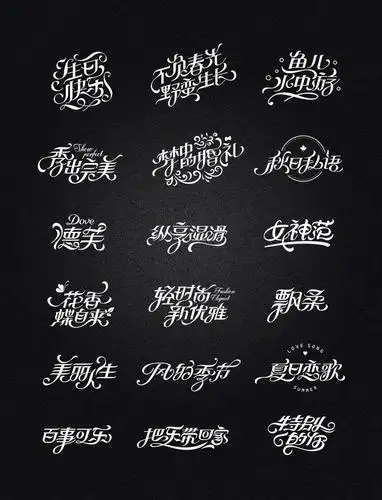 生日
快乐
不负春光
野蛮生长
鱼儿
水中游
Show
perfect
秀出完美
梦中
的婚礼
秋日私语
Dove
德芙
纵享湿滑
女神范
花香
蝶自来
轻时尚
新优雅
Fashion
Elegant
飘柔
美丽人生
风的季节
LOVE SONG
夏日恋歌
SUMMER
百事可乐
把乐带回家
特别
的你